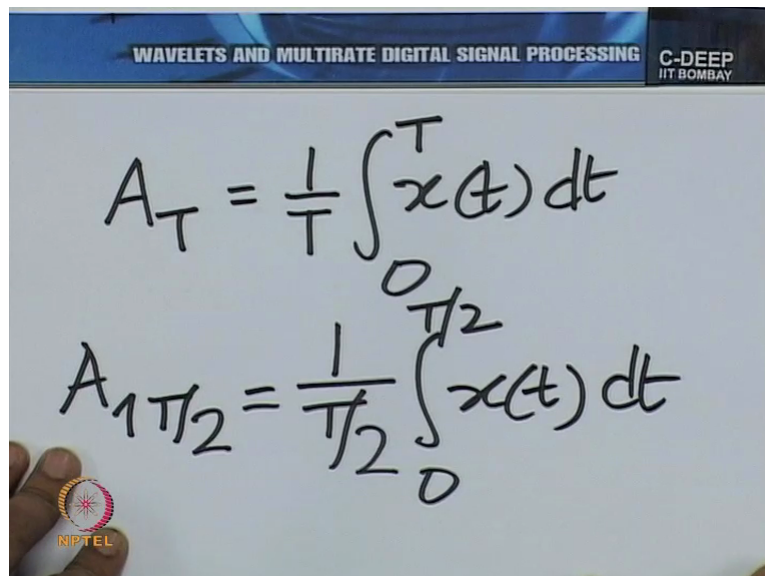 WAVELETS AND MULTIRATE DIGITAL SIGNAL PROCESSING
C-DEEP
IIT BOMBAY
A_T = 1/T ∫_0^T x(t) dt
A_{1 T/2} = 1/(T/2) ∫_0^{T/2} x(t) dt
NPTEL